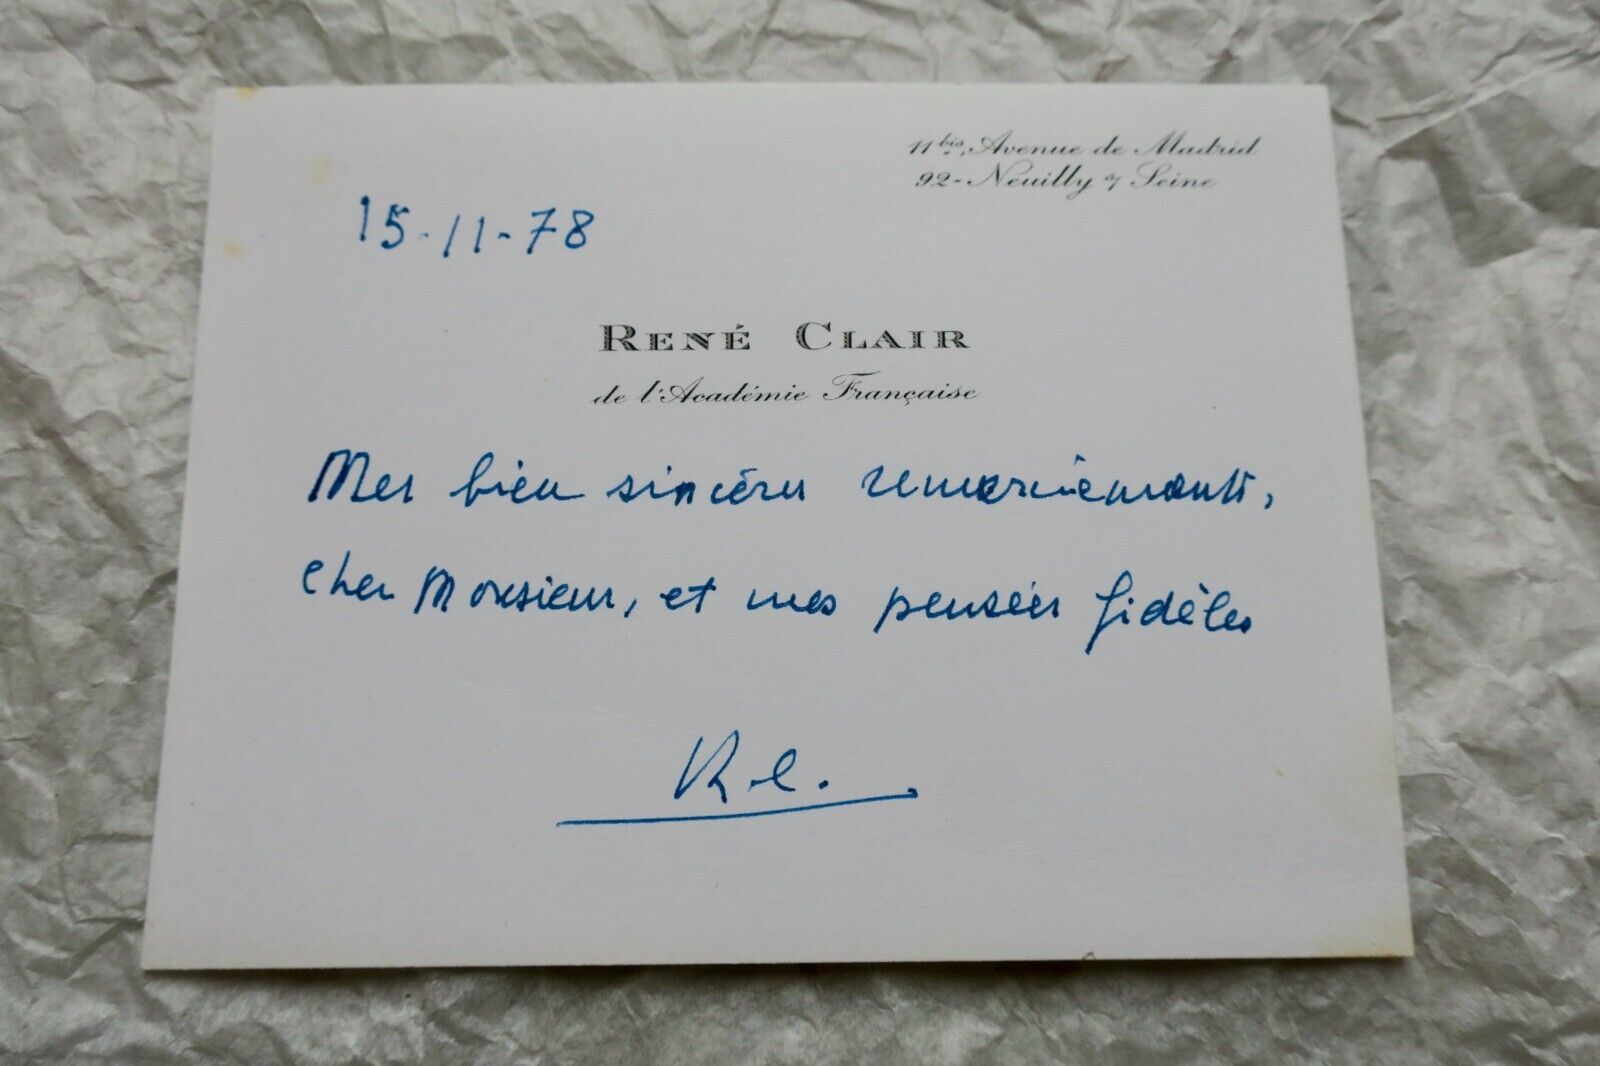 11bis, Avenue de Madrid
92-Neuilly s/ Seine
15-11-78
RENÉ CLAIR
de l'Académie Française
Mes bien sincères remerciements,
cher Monsieur, et mes pensées fidèles
R.C.